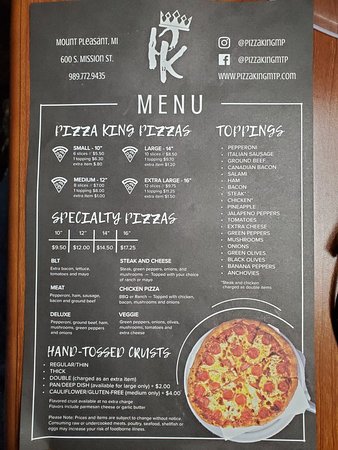 PK
MOUNT PLEASANT, MI
600 S. MISSION ST.
989.772.9435
@PIZZAKINGMP
@PIZZAKINGMTP
WWW.PIZZAKINGMTP.COM
MENU
PIZZA KING PIZZAS
SMALL - 10"
6 slices / $5.50
1 topping $6.30
extra item $.80
LARGE - 14"
10 slices / $8.50
1 topping $9.70
extra item $1.20
MEDIUM - 12"
8 slices / $7.00
1 topping $8.00
extra item $1.00
EXTRA LARGE - 16"
12 slices / $9.75
1 topping $11.25
extra item $1.50
TOPPINGS
- PEPPERONI
- ITALIAN SAUSAGE
- GROUND BEEF
- CANADIAN BACON
- SALAMI
- HAM
- BACON
- STEAK*
- CHICKEN*
- PINEAPPLE
- JALAPENO PEPPERS
- TOMATOES
- EXTRA CHEESE
- GREEN PEPPERS
- MUSHROOMS
- ONIONS
- GREEN OLIVES
- BLACK OLIVES
- BANANA PEPPERS
- ANCHOVIES
*Steak and chicken
charged as double items
SPECIALTY PIZZAS
10" 12" 14" 16"
$9.50 $12.00 $14.50 $17.25
BLT
Extra bacon, lettuce,
tomatoes and mayo
STEAK AND CHEESE
Steak, green peppers, onions, and
mushrooms - Topped with your choice
of ranch or mayo
MEAT
Pepperoni, ham, sausage,
bacon and ground beef
CHICKEN PIZZA
BBQ or Ranch - Topped with chicken,
bacon, mushrooms and onions
DELUXE
Pepperoni, ground beef, ham,
mushrooms, green peppers
and onions
VEGGIE
Green peppers, onions, olives,
mushrooms, tomatoes and
extra cheese
HAND-TOSSED CRUSTS
• REGULAR/THIN
• THICK
• DOUBLE (charged as an extra item)
• PAN/DEEP DISH (available for large only) + $2.00
• CAULIFLOWER/GLUTEN-FREE (medium only) + $4.00
Flavored crust available at no extra charge
Flavors include parmesan cheese or garlic butter
Please Note: Prices and items are subject to change without notice.
Consuming raw or undercooked meats, poultry, seafood, shellfish or
eggs may increase your risk of foodborne illness.